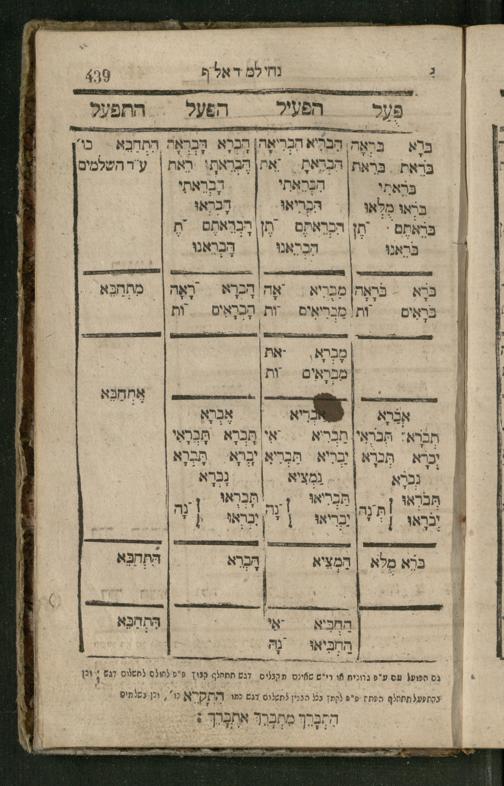 439 נחי למד אל״ף ג
פֻּעַל הפעיל הפעל התפעל
בֹּרָא בֹּרְאָה הִבְרִיא הִבְרִיאָה הָבְרָא הָבְרְאָה הִתְחַבֵּא כו׳
בֹּרֵאתָ בֹּרֵאת הִבְרֵאתָ ־את הָבְרֵאתָ ־ראת ע״ד השלמים
בֹּרֵאתִי הִבְרֵאתִי הָבְרֵאתִי
בֹּרְאוּ מֻלְּאוּ הִבְרִיאוּ הָבְרְאוּ
בֹּרֵאתֶם ־תֶן הִבְרֵאתֶם ־תֶן הָבְרֵאתֶם
בֹּרֵאנוּ הִבְרֵאנוּ הָבְרֵאנוּ
בֹּרָא בֹּרָאָה מַבְרִיא ־אָה הָבְרָא ־רָאָה מִתְחַבֵּא
בֹּרָאִים ־וֹת מַבְרִיאִים ־וֹת הָבְרָאִים ־וֹת
מָבְרָא ־את
מֻבְרָאִים ־וֹת
אֶתְחַבֵּא
אֲבֹרָא אַבְרִיא אָבְרָא
תְּבֹרָא תְּבֹרְאִי תַּבְרִיא ־אִי תָּבְרָא תָּבְרְאִי
יְבֹרָא תְּבֹרָא יַבְרִיא תַּבְרִיא יָבְרָא תָּבְרָא
נְבֹרָא נַמְצִיא נָבְרָא
תְּבֹרְאוּ תַּבְרִיאוּ תָּבְרְאוּ
יְבֹרְאוּ ־נָה יַבְרִיאוּ ־נָה יָבְרְאוּ ־נָה
בֹּרֵא מַלֵּא הַמְצִיא הָבְרֵא הִתְחַבֵּא
הַחְבִּיא ־אִי הִתְחַבֵּא
הַחְבִּיאוּ ־נָה
גם הפועל עם ע״פ גרונית או רי״ש שאינם מקבלים דגש תתחלף קבוץ פ״פ לחולם לתשלום דגש וכן
בהתפעל תתחלף הפתח פ״פ לקמץ בכל הבנין לתשלום דגש כמו הִתְקָרֵא כו׳, וכן בשלמים
הִתְבָּרֵךְ מִתְבָּרֵךְ אֶתְבָּרֵךְ :